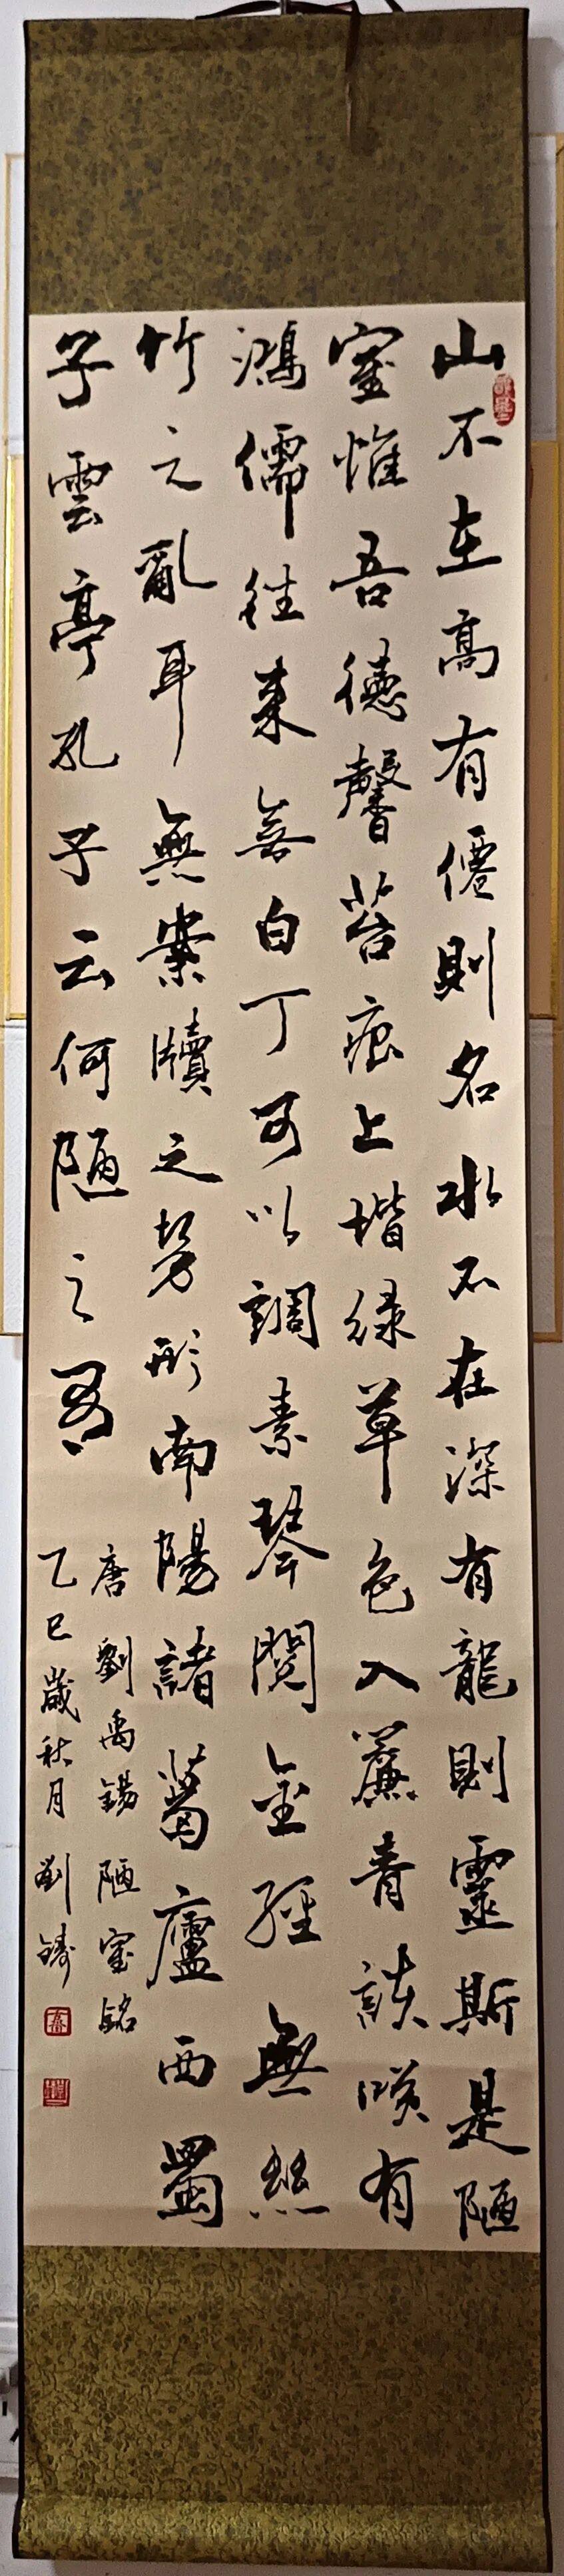 山不在高有僊則名水不在深有龍則靈斯是陋
室惟吾德馨苔痕上堦緑草色入簾青談咲有
鴻儒往来無白丁可以調素琴閱金經無絲
竹之亂耳無案牘之勞形南陽諸葛廬西蜀
子雲亭孔子云何陋之有
唐劉禹錫陋室銘
乙巳歲秋月劉鑄